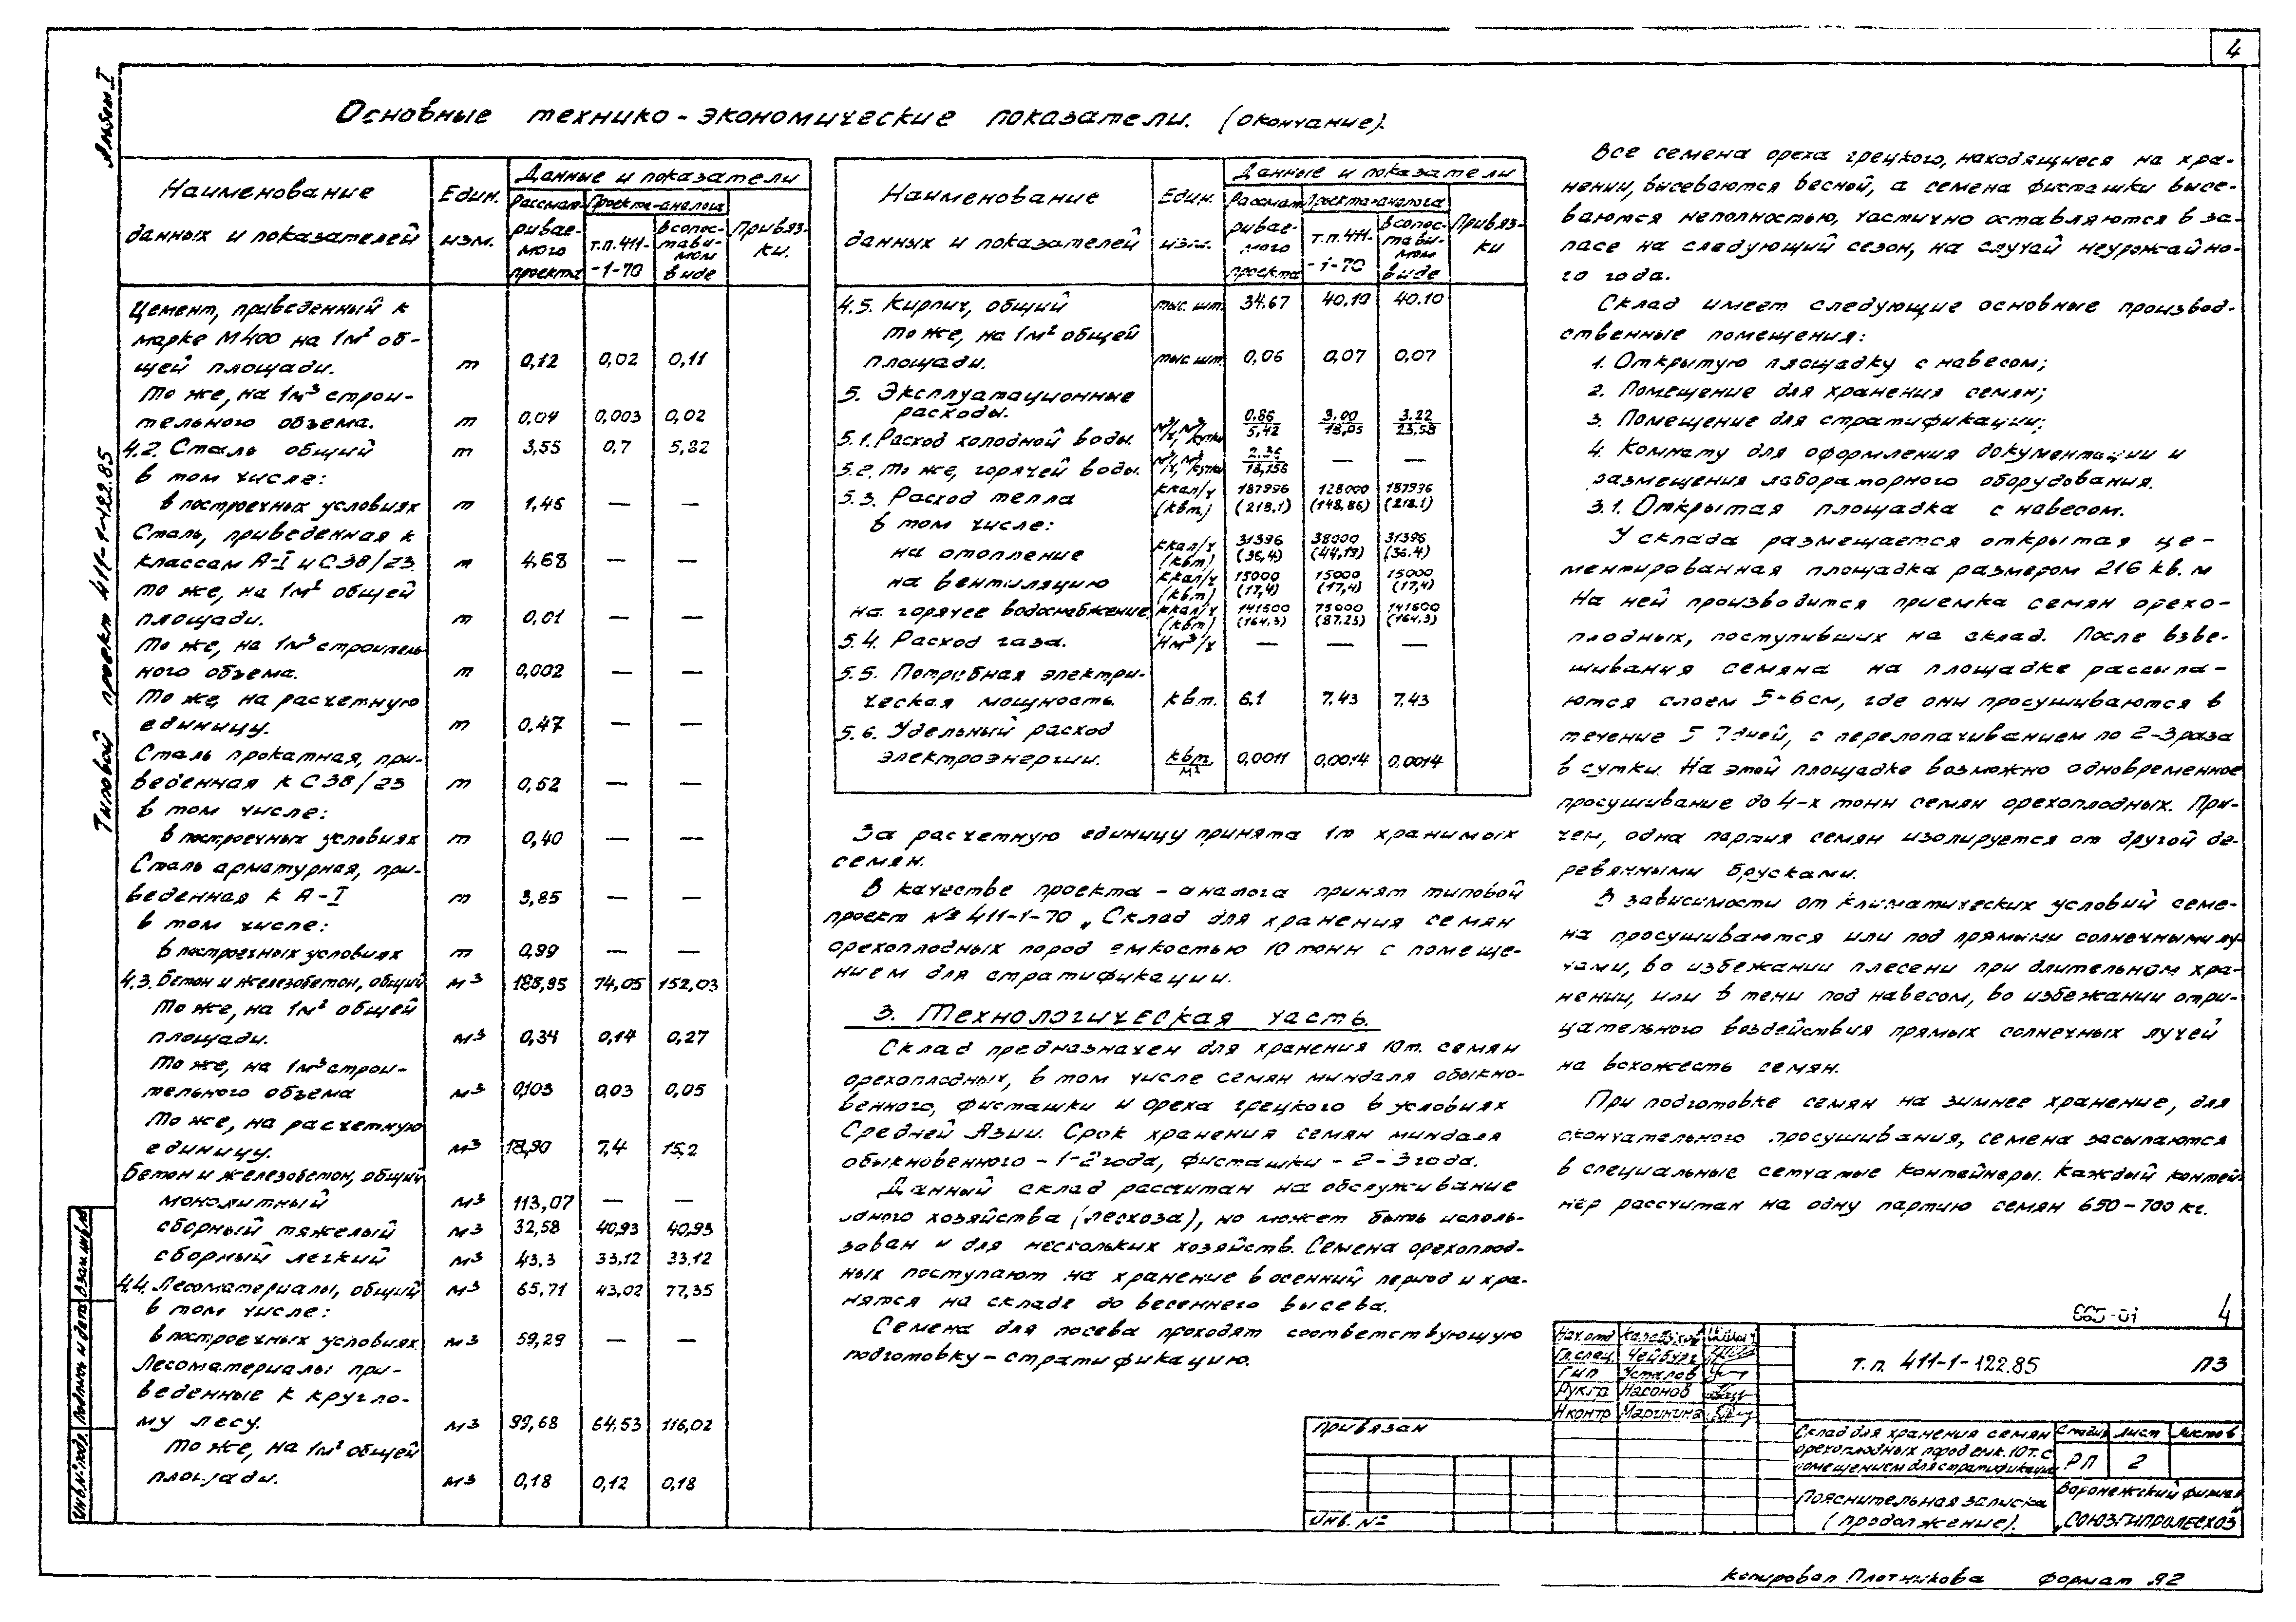 4
Альбом I
Типовой проект 411-1-122.85
Основные технико-экономические показатели. (окончание).
Наименование данных и показателей
Един. изм.
Данные и показатели
Рассматриваемого проекта
Проекта-аналога
т.п. 411-1-70
в сопоставимом виде
Привязки.
Цемент, приведенный к
марке М400 на 1м² об-
щей площади. т 0,12 0,02 0,11
То же, на 1м³ строи-
тельного объема. т 0,04 0,003 0,02
4.2. Сталь общий т 3,55 0,7 5,82
в том числе:
в построечных условиях т 1,45 — —
Сталь, приведенная к
классам А-I и С38/23. т 4,68 — —
То же, на 1м² общей
площади. т 0,01 — —
То же, на 1м³ строитель-
ного объема. т 0,002 — —
То же, на расчетную
единицу. т 0,47 — —
Сталь прокатная, при-
веденная к С38/23 т 0,52 — —
в том числе:
в построечных условиях т 0,40 — —
Сталь арматурная, при-
веденная к А-I т 3,85 — —
в том числе:
в построечных условиях т 0,99 — —
4.3. Бетон и железобетон, общий м³ 188,95 74,05 152,03
То же, на 1м² общей
площади. м³ 0,34 0,14 0,27
То же, на 1м³ строи-
тельного объема м³ 0,103 0,03 0,05
То же, на расчетную
единицу. м³ 18,90 7,4 15,2
Бетон и железобетон, общий
монолитный м³ 113,07 — —
сборный тяжелый м³ 32,58 40,93 40,93
сборный легкий м³ 43,3 33,12 33,12
4.4. Лесоматериалы, общий м³ 65,71 43,02 77,35
в том числе:
в построечных условиях м³ 59,29 — —
Лесоматериалы при-
веденные к кругло-
му лесу. м³ 99,68 64,53 116,02
То же, на 1м² общей
площади. м³ 0,18 0,12 0,18
Наименование данных и показателей
Един. изм.
Данные и показатели
Рассматриваемого проекта
Проекта-аналога
т.п. 411-1-70
в сопоставимом виде
Привязки
4.5. Кирпич, общий тыс. шт. 34,67 40.10 40.10
То же, на 1м² общей
площади. тыс шт. 0,06 0,07 0,07
5. Эксплуатационные
расходы.
5.1. Расход холодной воды. м³/ч, м³/сутки 0.86/5,42 3,00/18,05 3.22/23,58
5.2. То же, горячей воды. м³/ч, м³/сутки 2.36/18,156 — —
5.3. Расход тепла ккал/ч (квт) 187996 (218,1) 128000 (148,86) 187996 (218.1)
в том числе:
на отопление ккал/ч (квт) 31396 (36,4) 38000 (44,19) 31396 (36.4)
на вентиляцию ккал/ч (квт) 15000 (17,4) 15000 (17,4) 15000 (17,4)
на горячее водоснабжение ккал/ч (квт) 141600 (164,3) 75000 (87.25) 141600 (164.3)
5.4. Расход газа. Нм³/ч — — —
5.5. Потребная электри-
ческая мощность. квт. 6.1 7.43 7.43
5.6. Удельный расход
электроэнергии. квт./м² 0,0011 0,0014 0,0014
За расчетную единицу принята 1т хранимых
семян.
В качестве проекта - аналога принят типовой
проект №3 411-1-70 „Склад для хранения семян
орехоплодных пород емкостью 10 тонн с помеще-
нием для стратификации.
3. Технологическая часть.
Склад предназначен для хранения 10т. семян
орехоплодных, в том числе семян миндаля обыкно-
венного, фисташки и ореха грецкого в условиях
Средней Азии. Срок хранения семян миндаля
обыкновенного - 1-2 года, фисташки - 2-3 года.
Данный склад рассчитан на обслуживание
одного хозяйства (лесхоза), но может быть исполь-
зован и для нескольких хозяйств. Семена орехоплод-
ных поступают на хранение в осенний период и хра-
нятся на складе до весеннего высева.
Семена для посева проходят соответствующую
подготовку - стратификацию.
Все семена ореха грецкого, находящиеся на хра-
нении, высеваются весной, а семена фисташки высе-
ваются неполностью, частично оставляются в за-
пасе на следующий сезон, на случай неурожайно-
го года.
Склад имеет следующие основные производ-
ственные помещения:
1. Открытую площадку с навесом;
2. Помещение для хранения семян;
3. Помещение для стратификации;
4. Комнату для оформления документации и
размещения лабораторного оборудования.
3.1. Открытая площадка с навесом.
У склада размещается открытая це-
ментированная площадка размером 216 кв. м
На ней производится приемка семян орехо-
плодных, поступивших на склад. После взве-
шивания семяна на площадке рассыпа-
ются слоем 5-6см, где они просушиваются в
течение 5 7дней, с перелопачиванием по 2-3 раза
в сутки. На этой площадке возможно одновременное
просушивание до 4-х тонн семян орехоплодных. При-
чем, одна партия семян изолируется от другой де-
ревянными брусками.
В зависимости от климатических условий семе-
на просушиваются или под прямыми солнечными лу-
чами, во избежании плесени при длительном хра-
нении, или в тени под навесом, во избежании отри-
цательного воздействия прямых солнечных лучей
на всхожесть семян.
При подготовке семян на зимнее хранение, для
окончательного просушивания, семена засыпаются
в специальные сетчатые контейнеры. Каждый контей-
нер рассчитан на одну партию семян 650-700 кг.
4
Нач.отд
Гл.спец. Чейбург
ГИП Усталов
Рук.гр Насонов
Н контр Маринина
т.п. 411-1-122.85 ПЗ
Привязан
Инв. №
Склад для хранения семян
орехоплодных пород емк. 10т. с
помещением для стратификации
Стадия Лист Листов
РП 2
Пояснительная записка
(продолжение).
Воронежский филиал
„СОЮЗГИПРОЛЕСХОЗ"
Инв.№ подл. Подпись и дата Взам.инв.№
Копировал Плотникова Формат А2